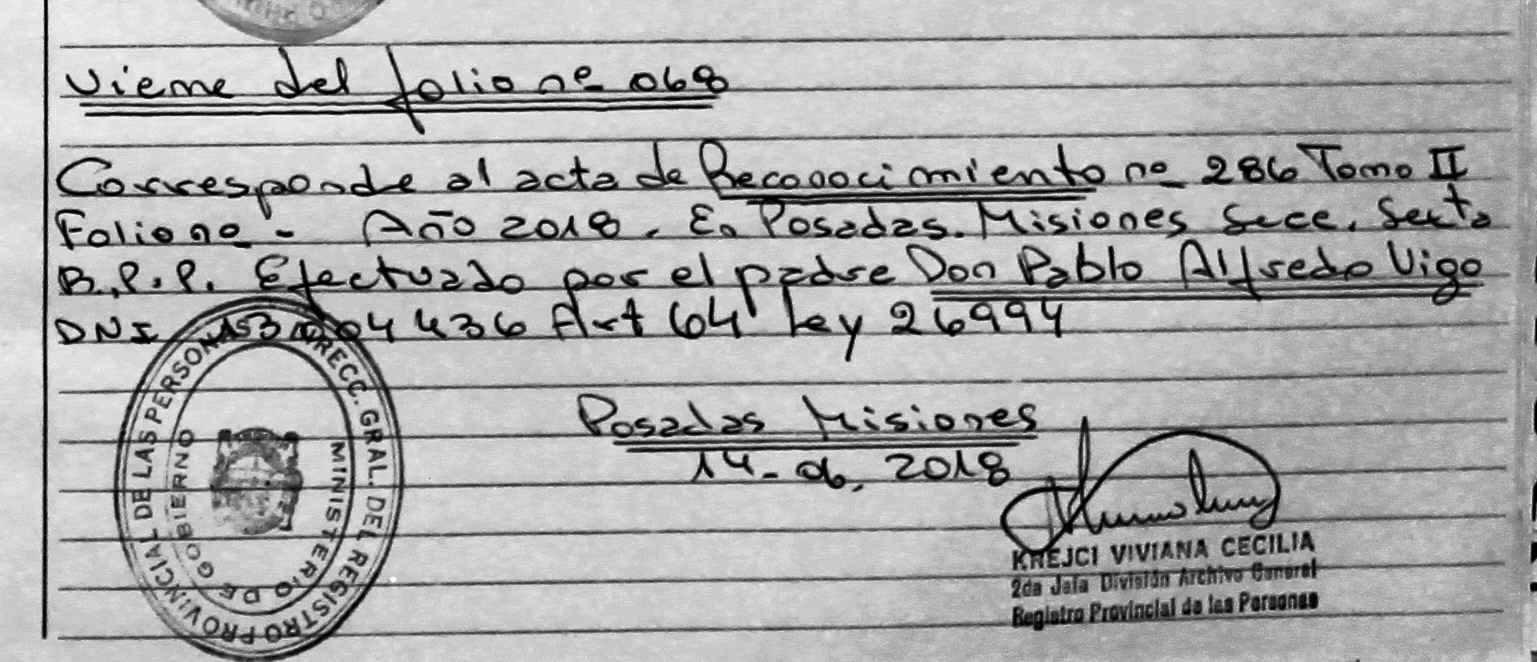 Viene del folio nº 068
Corresponde al acta de Reconocimiento nº 286 Tomo II
Folio nº - Año 2018. En Posadas. Misiones Secc. Sexta
B.P.P. Efectuado por el padre Don Pablo Alfredo Vigo
DNI Art 64 Ley 26994
Posadas Misiones
14-06.2018
DIRECC. GRAL. DEL REGISTRO PROVINCIAL DE LAS PERSONAS
MINISTERIO DE GOBIERNO
KREJCI VIVIANA CECILIA
2da Jefa División Archivo General
Registro Provincial de las Personas